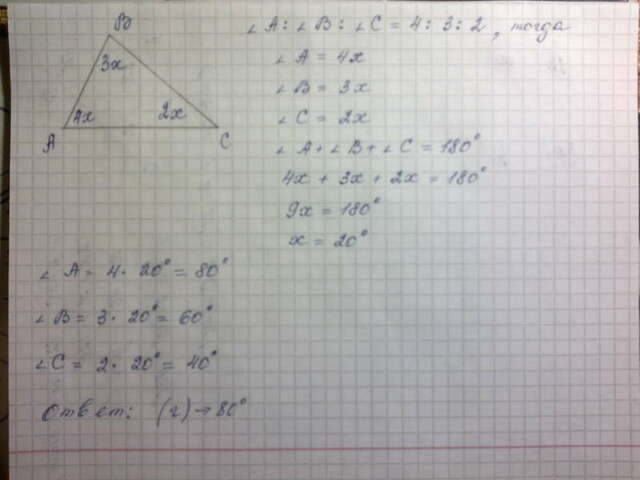 B
3x
A 4x 2x C
∠A : ∠B : ∠C = 4 : 3 : 2, тогда
∠A = 4x
∠B = 3x
∠C = 2x
∠A + ∠B + ∠C = 180°
4x + 3x + 2x = 180°
9x = 180°
x = 20°
∠A = 4 · 20° = 80°
∠B = 3 · 20° = 60°
∠C = 2 · 20° = 40°
Ответ: (г) → 80°